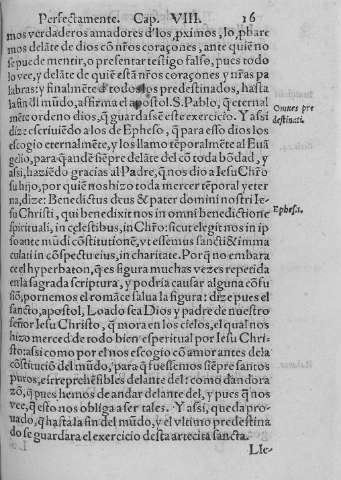 Perfectamente. Cap. VIII. 16
mos verdaderos amadores d'los, pximos, lo, pbare
mos delãte de dios cõ nr̃os coraçones, ante quiẽ no
se puede mentir, o presentar testigo falso, pues todo
lo vee, y delãte de quiẽ estã nr̃os coraçones y nr̃as pa
labras: y finalmẽte d'todos los predestinados, hasta
la fin dl mũdo, affirma el apostol. S. Pablo, q̃ eternal
mẽte ordeno dios, q̃ guardassẽ este exercicio. Y assi
dize escriuiẽdo a los de Epheso, q̃ para esso dios los
escogio eternalmẽte, y los llamo tẽporalmẽte al Euã
gelio, para q̃ andẽ siẽpre delãte del cõ toda bõdad, y
assi, haziẽdo gracias al Padre, q̃ nos dio a Iesu Chr̃o
su hijo, por quiẽ nos hizo toda mercer tẽporal y eter
na, dize: Benedictus deus & pater domini nostri Ie-
su Christi, qui benedixit nos in omni benedictione
spirituali, in cęlestibus, in Chr̃o: sicut elegit nos in ip
so ante mũdi cõstitutionẽ, vt essemus sancti & imma
culati in cõspectu eius, in charitate. Porq̃ no embara
ce el hyperbaton, q̃ es figura muchas vezes repetida
en la sagrada scriptura, y podria causar alguna cõfu
siõ, pornemos el romãce salua la figura: dize pues el
sancto, apostol, Loado sea Dios y padre de nuestro
señor Iesu Christo, q̃ mora en los cielos, el qual nos
hizo merced de todo bien espiritual por Iesu Chri-
sto: assi como por el nos escogio cõ amor antes de la
cõstituciõ del mũdo, para q̃ fuessemos siẽpre santos
puros, e irreprehẽsibles delante del: como dando ra
zõ, q̃ pues hemos de andar delante del, y pues q̃ nos
vee, q̃ esto nos obliga a ser tales. Y assi, queda pro-
uado, q̃ hasta la fin del mũdo, y el vltimo predestina
do se guardara el exercicio desta arte cita sancta.
Lle-
Omnes pre
destinati.
Ephes. 1.